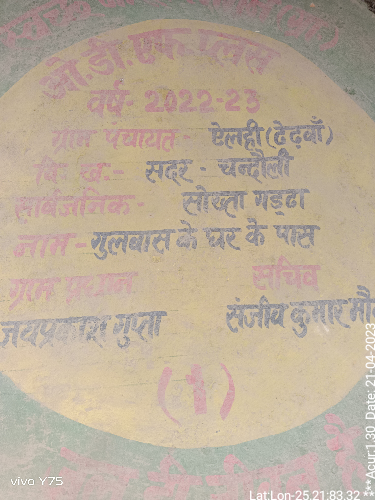 ओ.डी.एफ प्लस
वर्ष- 2022-23
ग्राम पंचायत- ऐलही (ढेढवाँ)
वि. ख.- सदर - चन्दौली
सार्वजनिक- सोख्ता गड्ढा
नाम- गुलवास के घर के पास
ग्राम प्रधान सचिव
जयप्रकाश गुप्ता संजीव कुमार मौ
(1)
vivo Y75
Lat:Lon-25.21:83.32
**Acur:1.30 Date: 21-04-2023